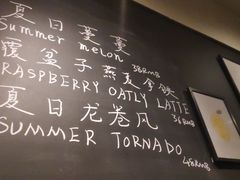 夏日蔓蔓
Summer melon 38RMB
覆盆子燕麦拿铁
RASPBERRY OATLY LATTE 36RMB
夏日龙卷风
SUMMER TORNADO 48RMB